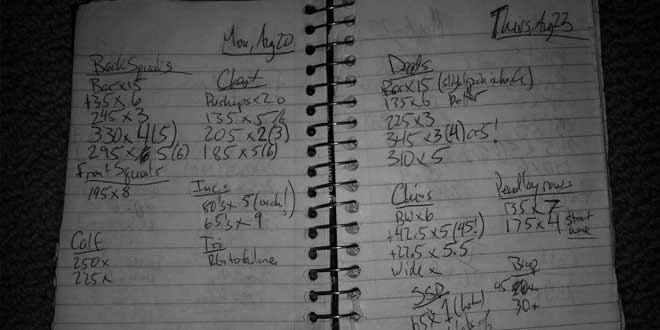 Mon, Aug 20
Back Squats
Bar x 15
135 x 6
245 x 3
330 x 4 (5)
295 x 5 (6)
Front Squats
195 x 8
Calf
250 x
225 x
Chest
Pushups x 20
135 x 5/6
205 x 2 (3)
185 x 5 (6)
Inc:
80's x 5 (ouch!)
65's x 9
Tri
Thurs, Aug 23
Deads
Bar x 15 (slight pain in back)
135 x 6 better
225 x 3
345 x 3 (4) or 5!
310 x 5
Chins
BW x 6
+42.5 x 5 (45!)
+22.5 x 5.5
Wide x
Pendlay rows
135 x 7
175 x 4 start here
Bicep
30 x